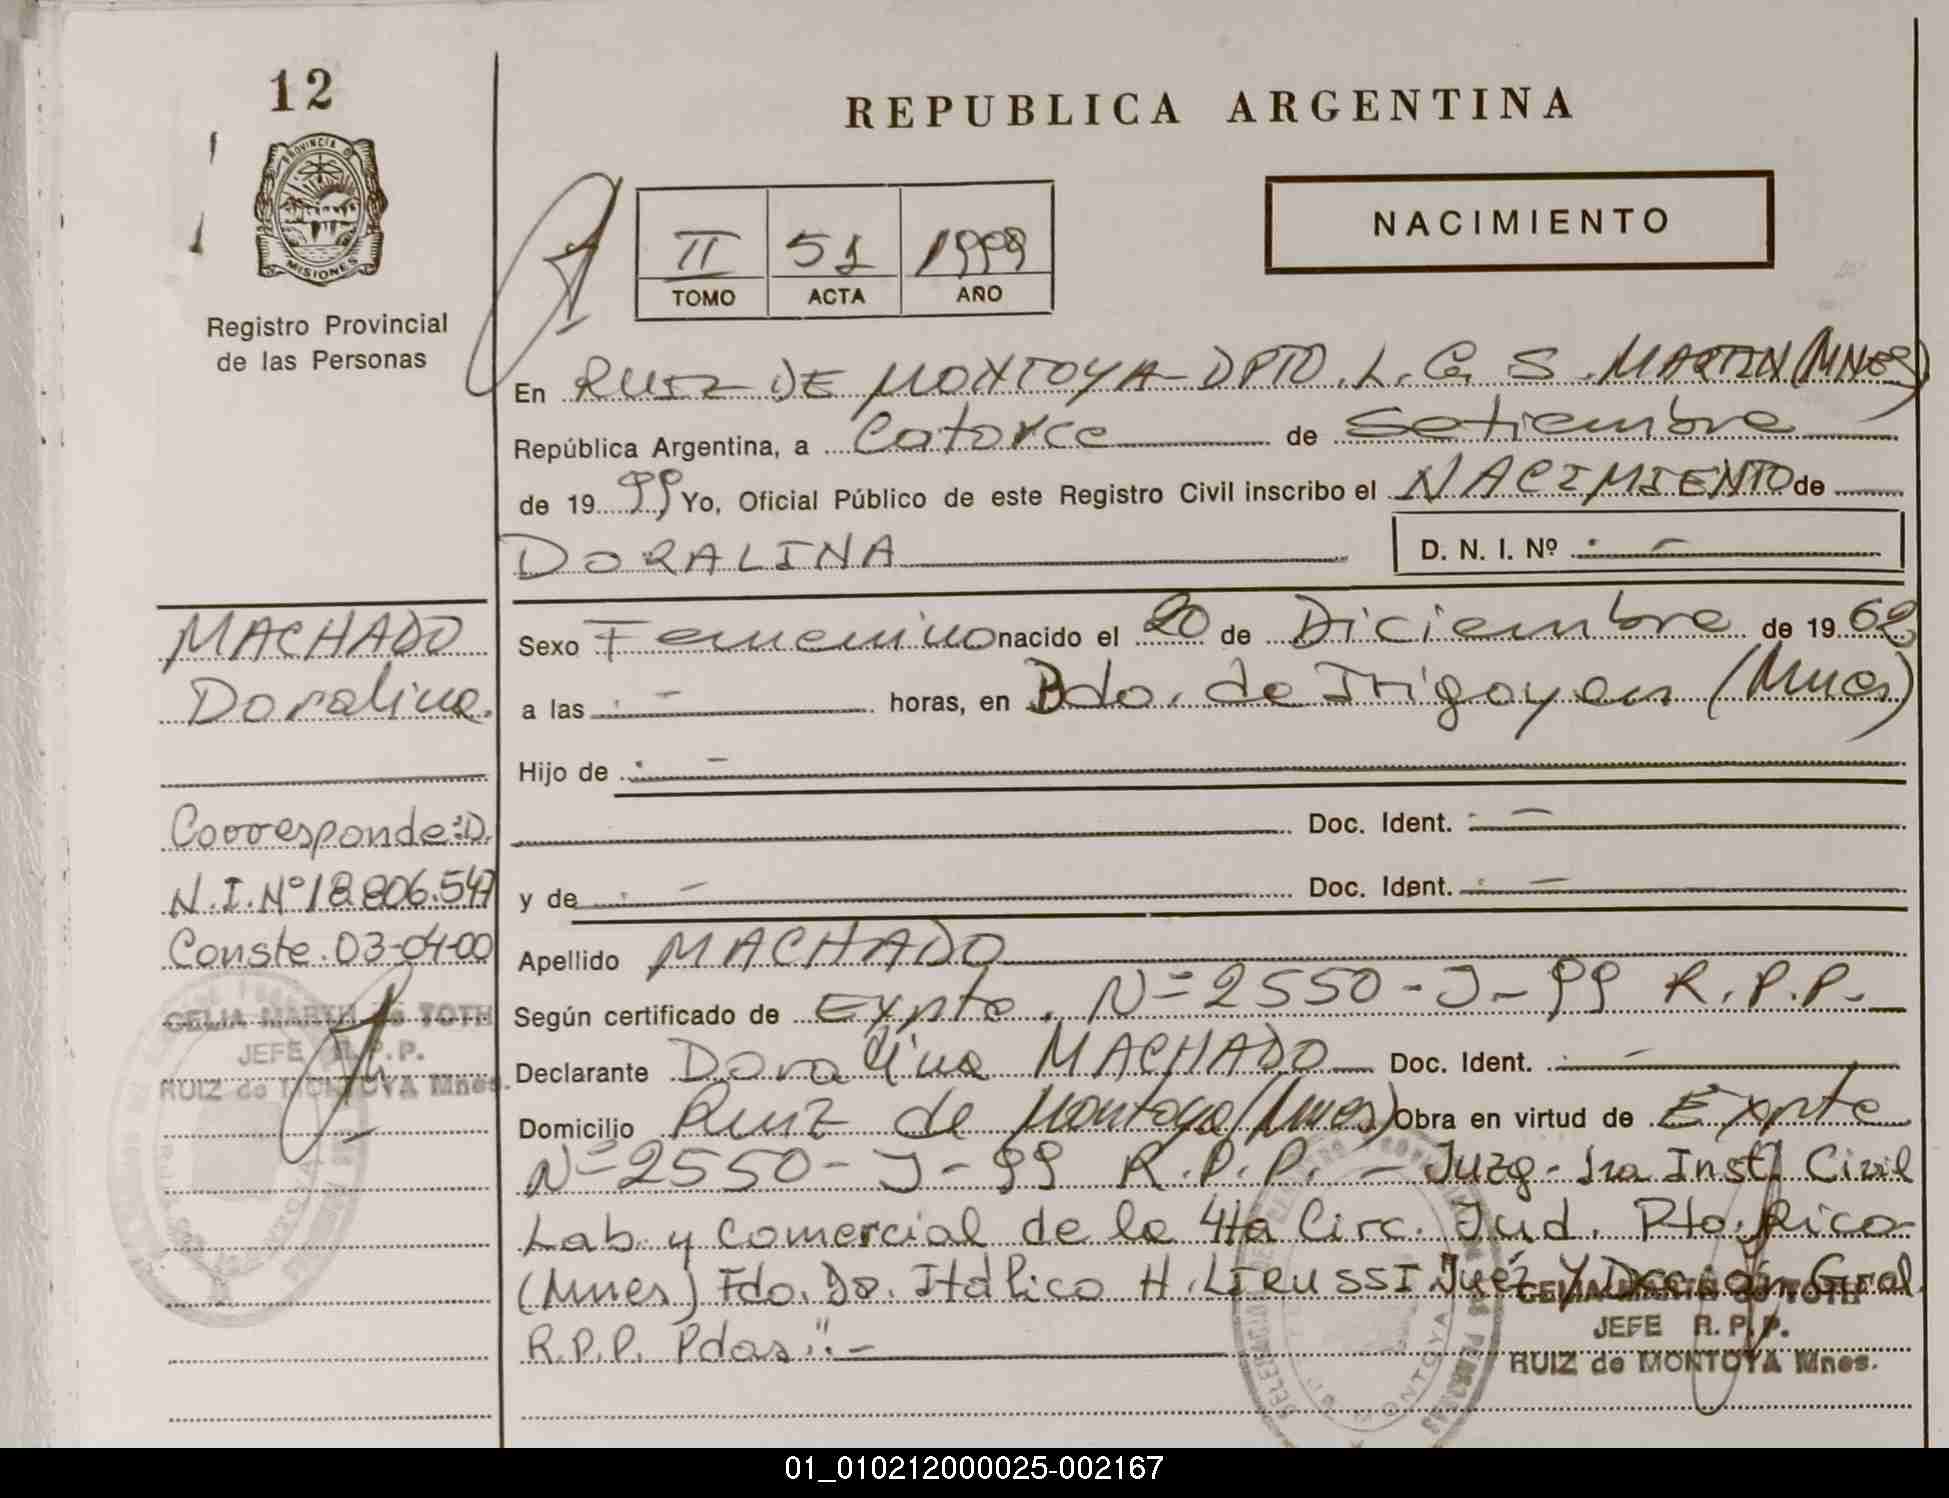 12
PROVINCIA DE
MISIONES
Registro Provincial
de las Personas
REPUBLICA ARGENTINA
II 51 1999
TOMO ACTA AÑO
NACIMIENTO
En RUIZ DE MONTOYA - DPTO. L. G. S. MARTIN (MNES)
República Argentina, a Catorce de Setiembre
de 19 99 Yo, Oficial Público de este Registro Civil inscribo el NACIMIENTO de
DORALINA D. N. I. Nº . -
Sexo Femenino nacido el 20 de Diciembre de 19 62
a las . - horas, en Bdo. de Irigoyen (Mnes)
Hijo de . -
Doc. Ident. . -
y de . - Doc. Ident. . -
Apellido MACHADO
Según certificado de Expte. Nº 2550-J-99 R.P.P.
Declarante Doralina MACHADO Doc. Ident. . -
Domicilio Ruiz de Montoya (Mnes) Obra en virtud de Expte
Nº 2550-J-99 R.P.P. - Juzg. 1ra Inst. Civil
Lab. y Comercial de la 4ta Circ. Jud. Pto. Rico
(Mnes) Fdo. Dr. Itálico H. LIRUSSI Juez y Dección Gral.
R.P.P. Pdas". -
CELIA MARTH de TOTH
JEFE R.P.P.
RUIZ de MONTOYA Mnes.
MACHADO
Doralina.
Corresponde: D.
N.I. Nº 18.806.547
Conste. 03-04-00
CELIA MARTH de TOTH
JEFE R.P.P.
RUIZ de MONTOYA Mnes.
01_010212000025-002167